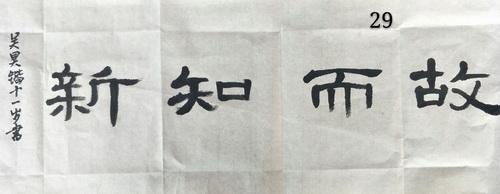 29
故而知新
吴昊锴十一岁书